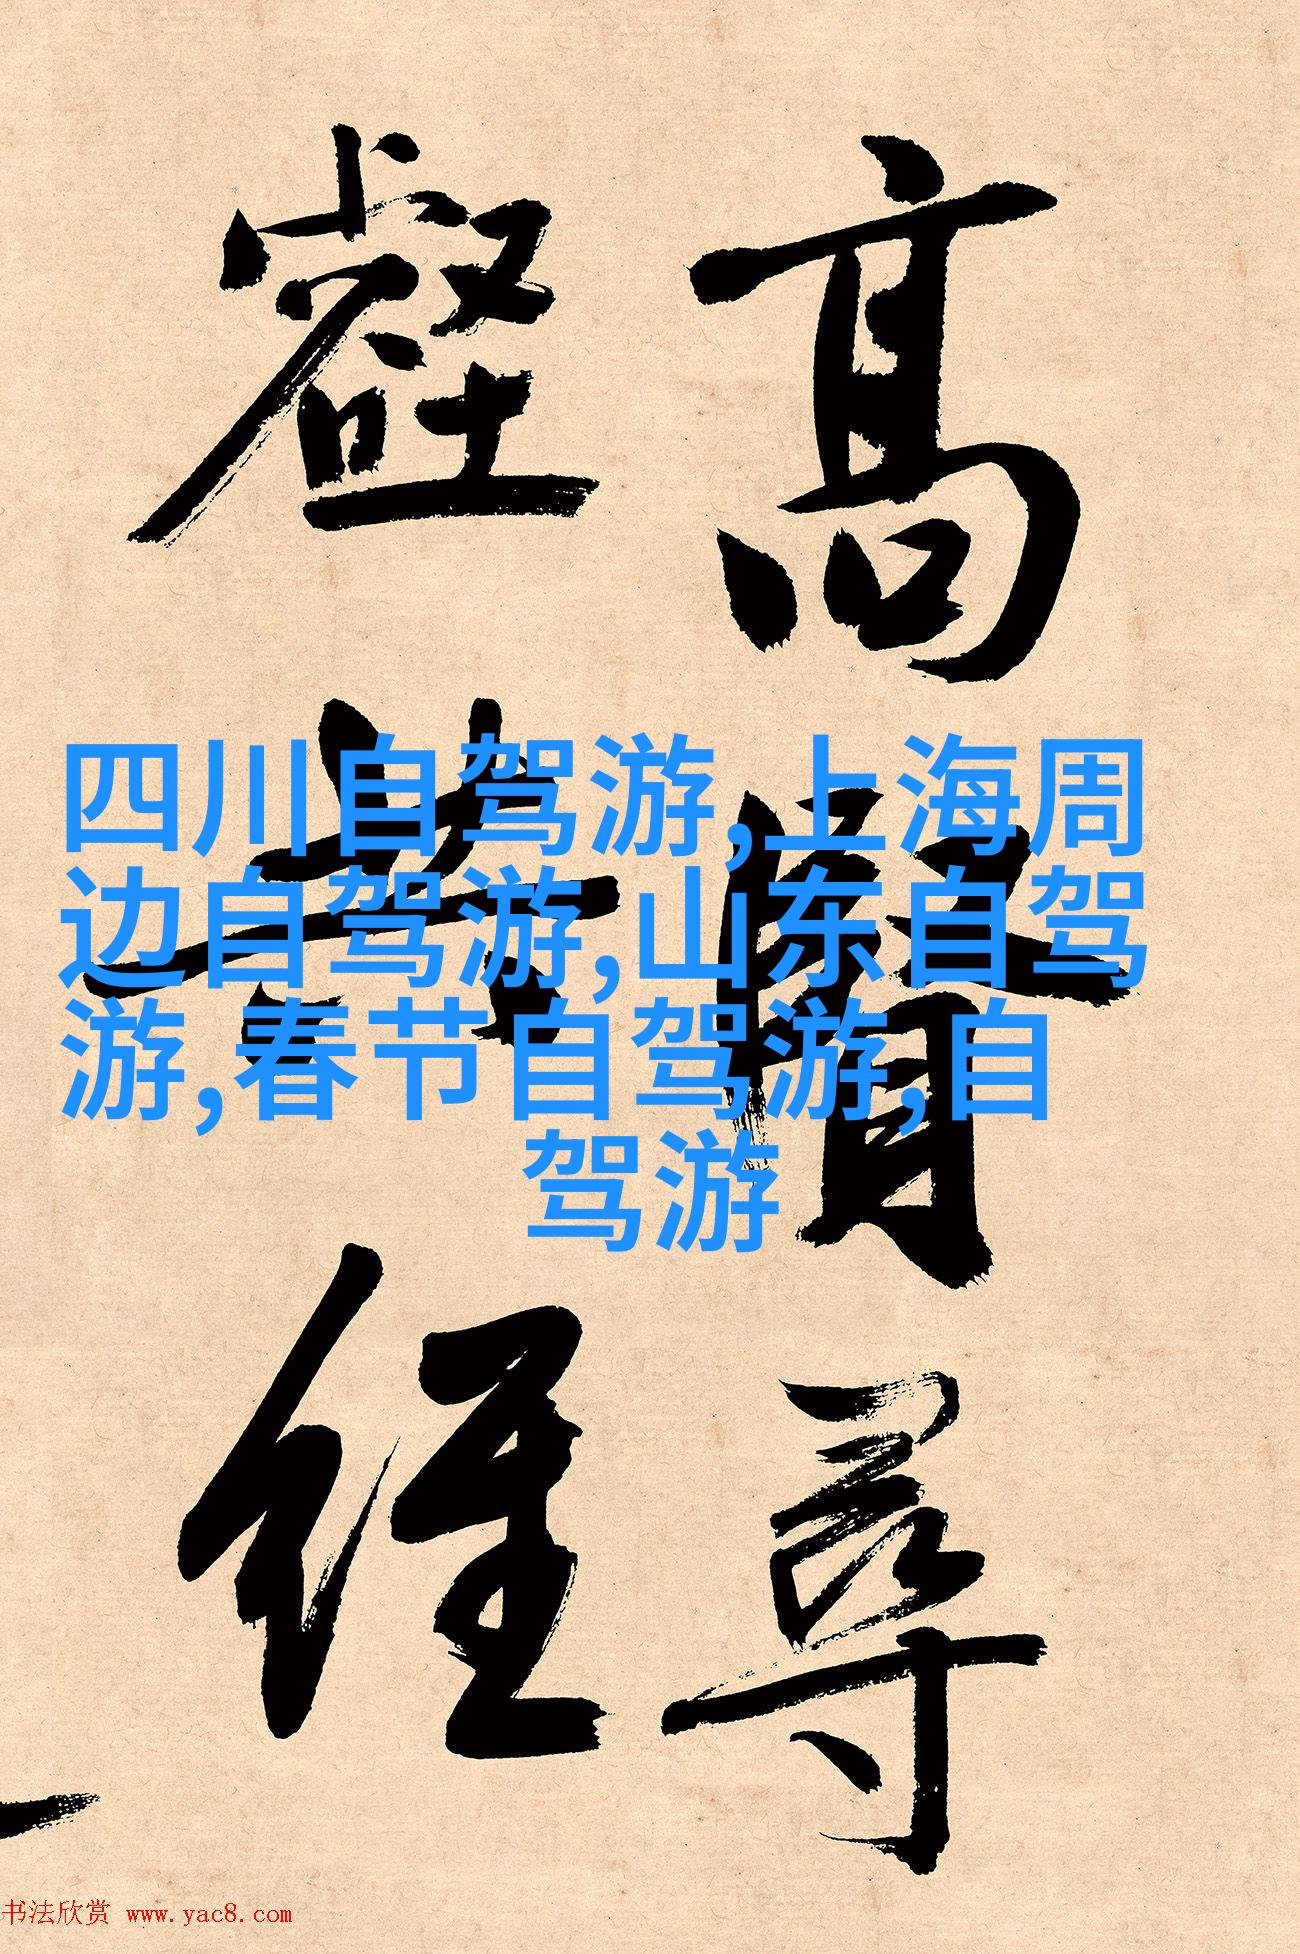 高賢尋
壑黄經
四川自驾游,上海周
边自驾游,山东自驾
游,春节自驾游,自
驾游
书法欣赏 www.yac8.com